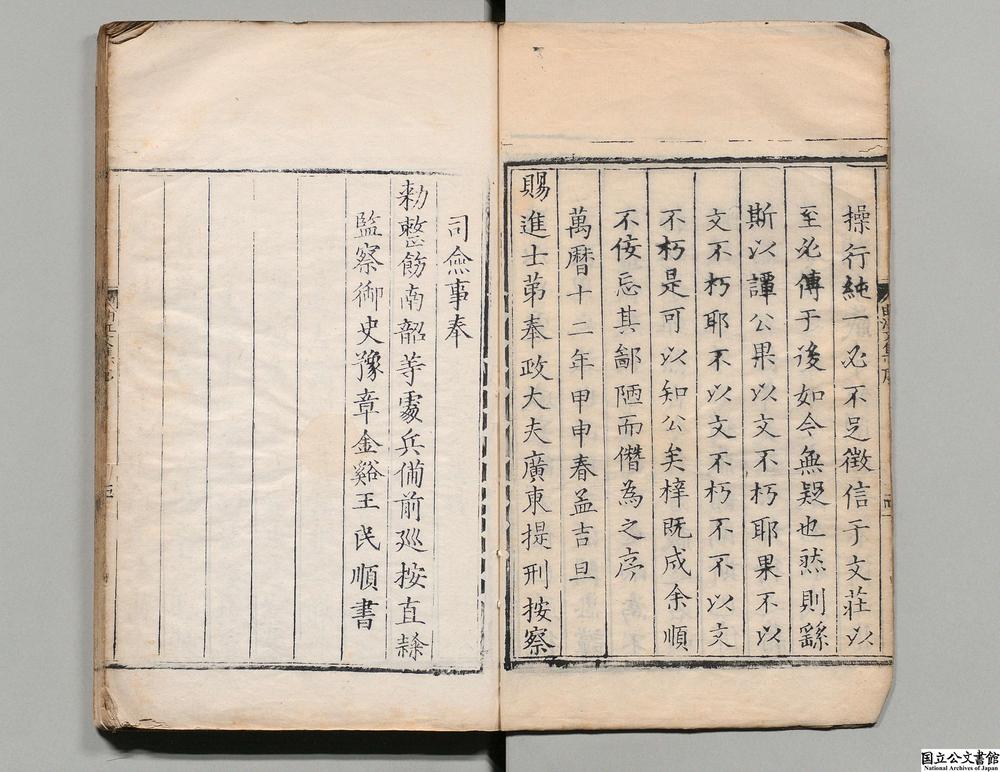 操行純一必不足徵信于文莊以
至必傳于後如今無疑也然則繇
斯以譚公果以文不朽耶果不以
文不朽耶不以文不朽不不以文
不朽是可以知公矣梓既成余順
不佞忘其鄙陋而僭為之序
萬曆十二年甲申春孟吉旦
賜進士第奉政大夫廣東提刑按察
司僉事奉
勑整飭南韶等處兵備前廵按直隸
監察御史豫章金谿王民順書
国立公文書館
National Archives of Japan